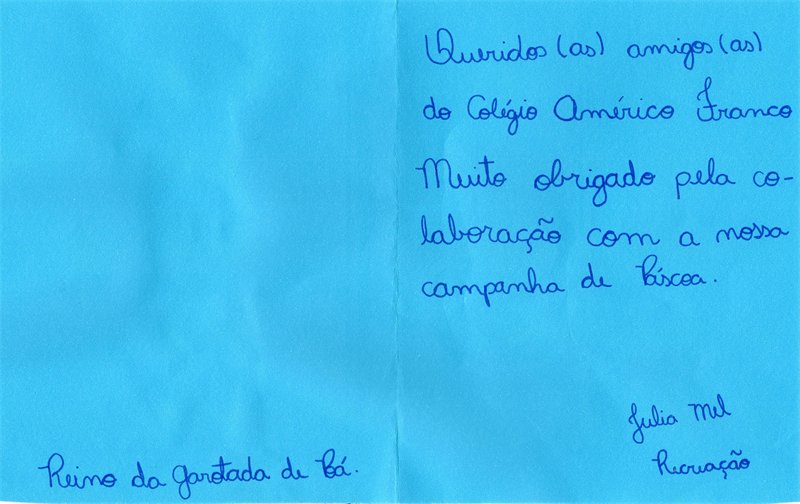 Queridos (as) amigos (as)
do Colégio Américo Franco
Muito obrigado pela co-
laboração com a nossa
campanha de Páscoa.
Julia Mel
Recreação
Reino da garotada de Poá.